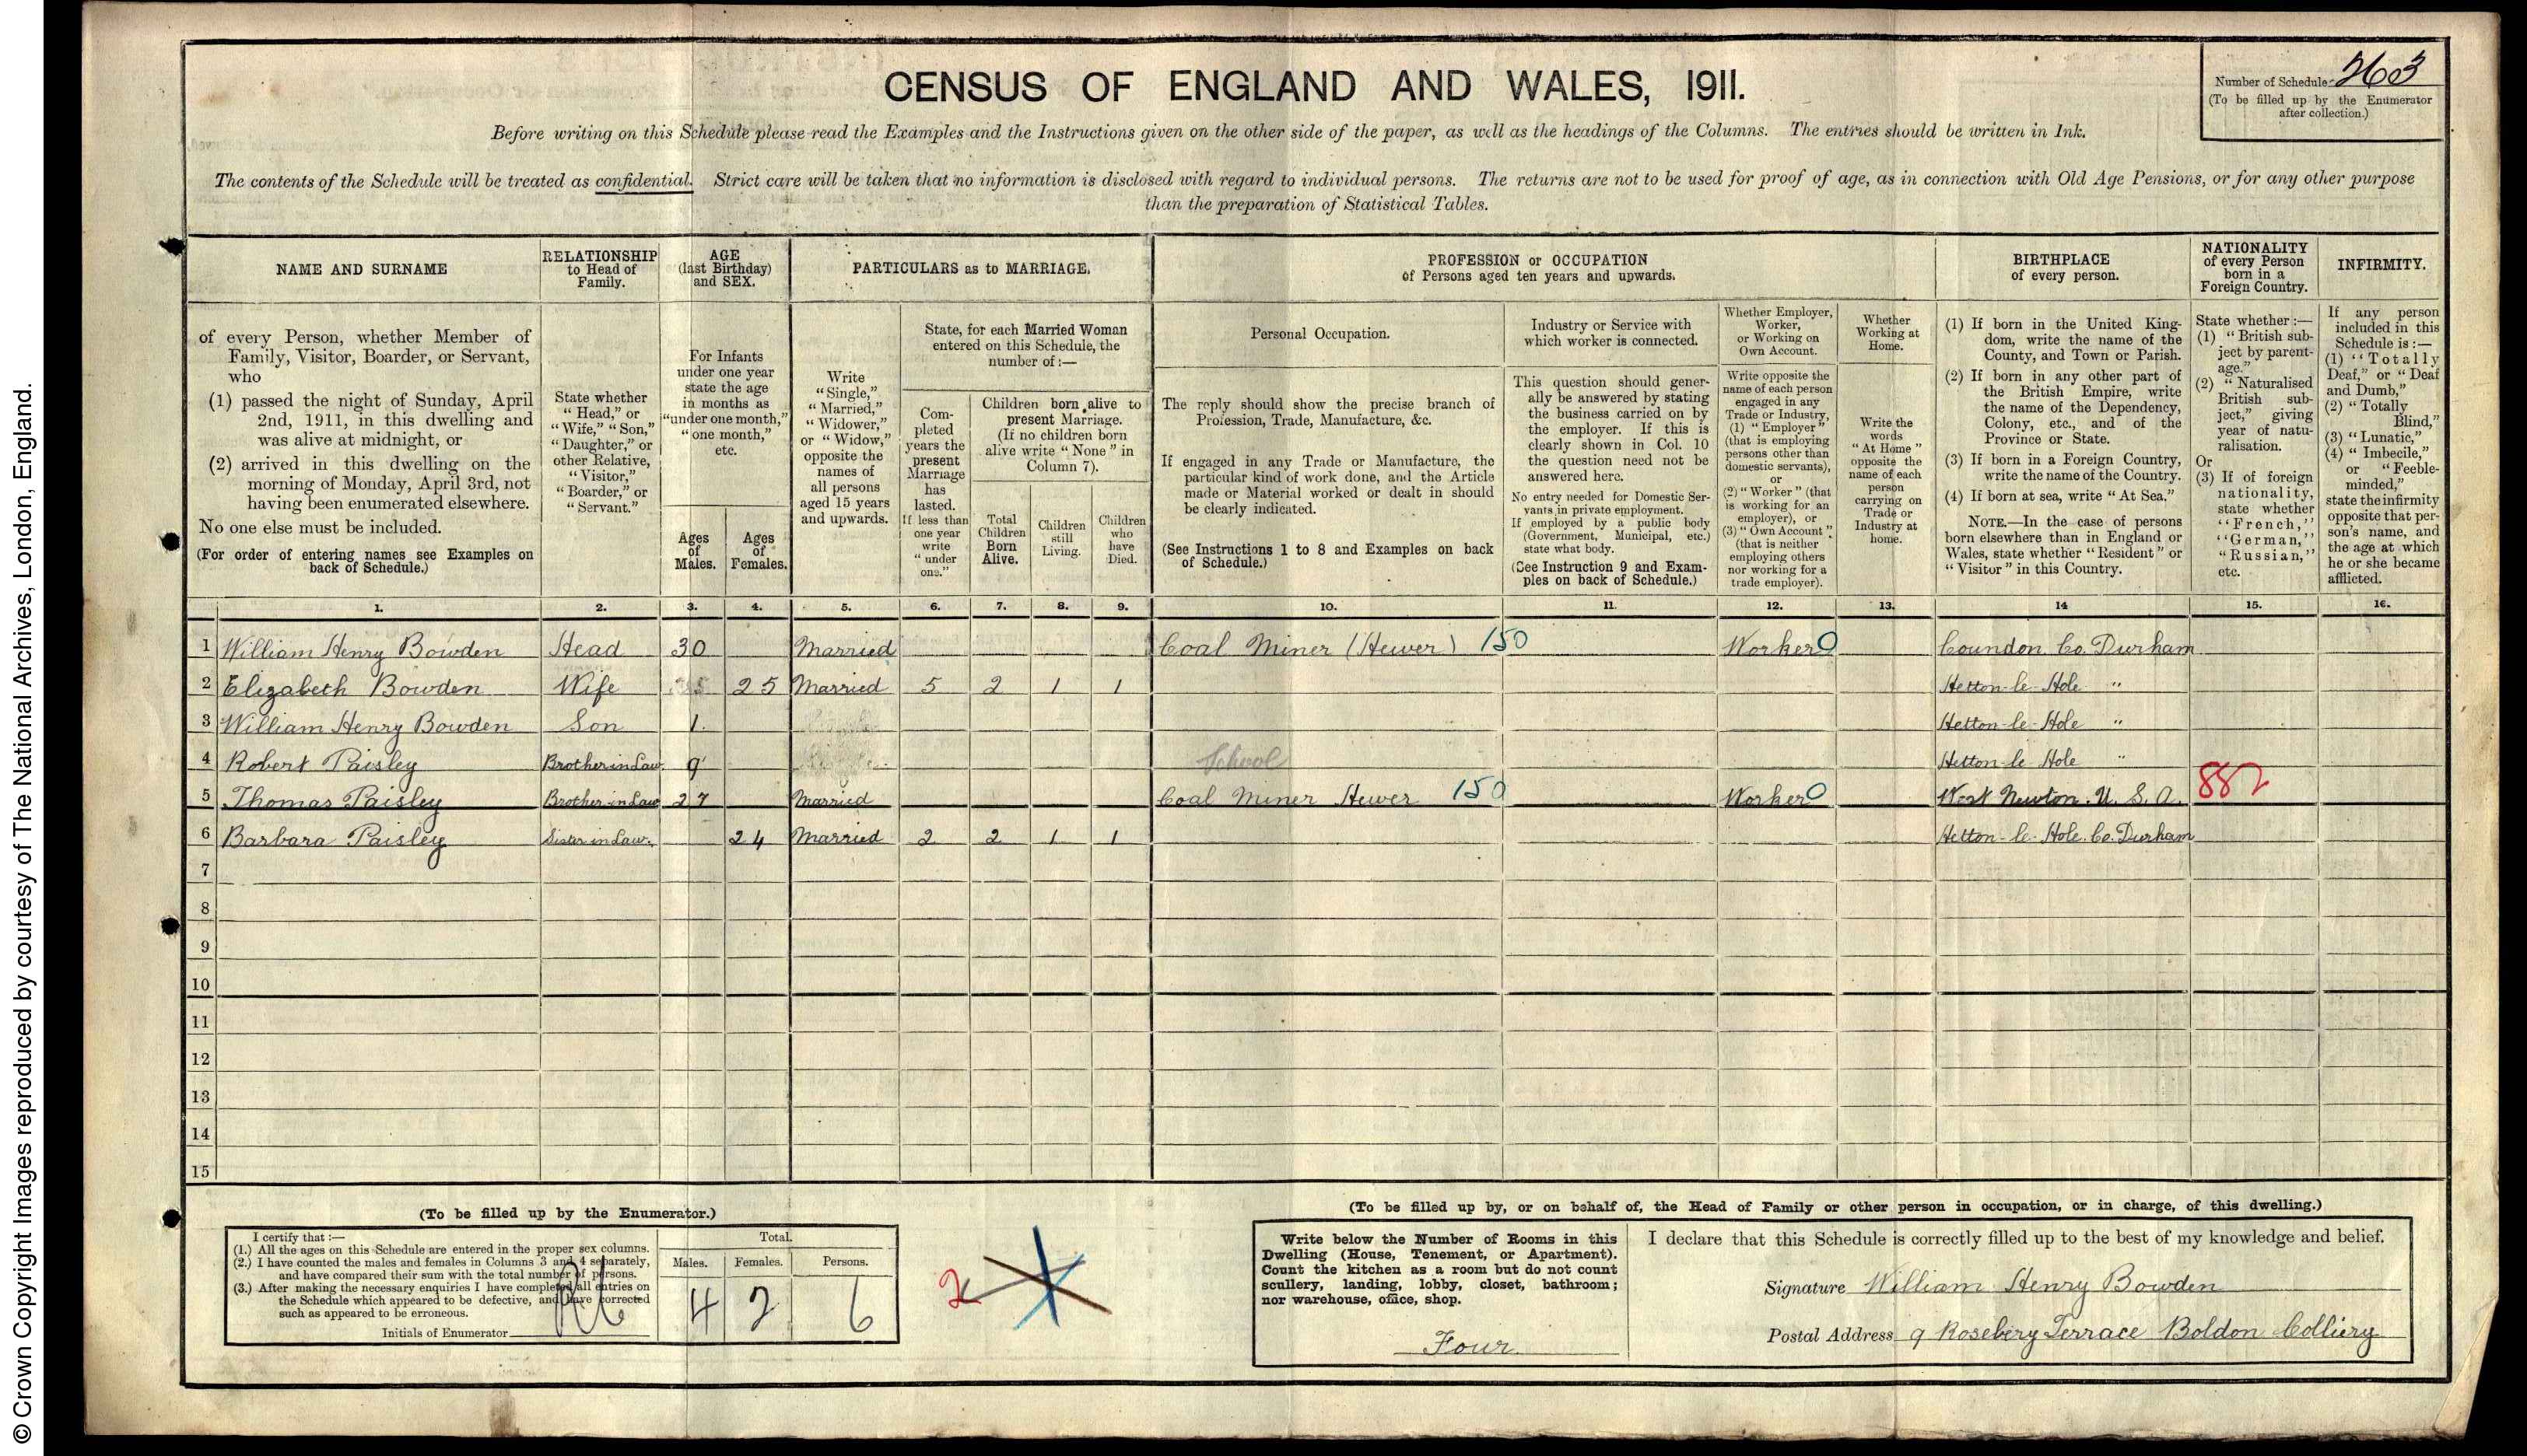 © Crown Copyright Images reproduced by courtesy of The National Archives, London, England.
CENSUS OF ENGLAND AND WALES, 1911.
Number of Schedule 263
(To be filled up by the Enumerator
after collection.)
Before writing on this Schedule please read the Examples and the Instructions given on the other side of the paper, as well as the headings of the Columns. The entries should be written in Ink.
The contents of the Schedule will be treated as confidential. Strict care will be taken that no information is disclosed with regard to individual persons. The returns are not to be used for proof of age, as in connection with Old Age Pensions, or for any other purpose
than the preparation of Statistical Tables.
NAME AND SURNAME
of every Person, whether Member of
Family, Visitor, Boarder, or Servant,
who
(1) passed the night of Sunday, April
2nd, 1911, in this dwelling and
was alive at midnight, or
(2) arrived in this dwelling on the
morning of Monday, April 3rd, not
having been enumerated elsewhere.
No one else must be included.
(For order of entering names see Examples on
back of Schedule.)
RELATIONSHIP
to Head of
Family.
State whether
"Head," or
"Wife," "Son,"
"Daughter," or
other Relative,
"Visitor,"
"Boarder," or
"Servant."
AGE
(last Birthday)
and SEX.
For Infants
under one year
state the age
in months as
"under one month,"
"one month,"
etc.
Ages
of
Males.
Ages
of
Females.
PARTICULARS as to MARRIAGE.
Write
"Single,"
"Married,"
"Widower,"
or "Widow,"
opposite the
names of
all persons
aged 15 years
and upwards.
State, for each Married Woman
entered on this Schedule, the
number of:—
Com-
pleted
years the
present
Marriage
has
lasted.
If less than
one year
write
"under
one."
Children born alive to
present Marriage.
(If no children born
alive write "None" in
Column 7).
Total
Children
Born
Alive.
Children
still
Living.
Children
who
have
Died.
PROFESSION or OCCUPATION
of Persons aged ten years and upwards.
Personal Occupation.
The reply should show the precise branch of
Profession, Trade, Manufacture, &c.
If engaged in any Trade or Manufacture, the
particular kind of work done, and the Article
made or Material worked or dealt in should
be clearly indicated.
(See Instructions 1 to 8 and Examples on back
of Schedule.)
Industry or Service with
which worker is connected.
This question should gener-
ally be answered by stating
the business carried on by
the employer. If this is
clearly shown in Col. 10
the question need not be
answered here.
No entry needed for Domestic Ser-
vants in private employment.
If employed by a public body
(Government, Municipal, etc.)
state what body.
(See Instruction 9 and Exam-
ples on back of Schedule.)
Whether Employer,
Worker,
or Working on
Own Account.
Write opposite the
name of each person
engaged in any
Trade or Industry,
(1) "Employer"
(that is employing
persons other than
domestic servants),
or
(2) "Worker" (that
is working for an
employer), or
(3) "Own Account"
(that is neither
employing others
nor working for a
trade employer).
Whether
Working at
Home.
Write the
words
"At Home"
opposite the
name of each
person
carrying on
Trade or
Industry at
home.
BIRTHPLACE
of every person.
(1) If born in the United King-
dom, write the name of the
County, and Town or Parish.
(2) If born in any other part of
the British Empire, write
the name of the Dependency,
Colony, etc., and of the
Province or State.
(3) If born in a Foreign Country,
write the name of the Country.
(4) If born at sea, write "At Sea."
NOTE.—In the case of persons
born elsewhere than in England or
Wales, state whether "Resident" or
"Visitor" in this Country.
NATIONALITY
of every Person
born in a
Foreign Country.
State whether:—
(1) "British sub-
ject by parent-
age."
(2) "Naturalised
British sub-
ject," giving
year of natu-
ralisation.
Or
(3) If of foreign
nationality,
state whether
"French,"
"German,"
"Russian,"
etc.
INFIRMITY.
If any person
included in this
Schedule is:—
(1) "Totally
Deaf," or "Deaf
and Dumb,"
(2) "Totally
Blind,"
(3) "Lunatic,"
(4) "Imbecile,"
or "Feeble-
minded,"
state the infirmity
opposite that per-
son's name, and
the age at which
he or she became
afflicted.
1. 2. 3. 4. 5. 6. 7. 8. 9. 10. 11. 12. 13. 14 15. 16.
1 William Henry Bowden Head 30 Married Coal Miner (Hewer) 150 Worker O Coundon Co. Durham
2 Elizabeth Bowden Wife 25 Married 5 2 1 1 Hetton-le-Hole "
3 William Henry Bowden Son 1. Hetton-le-Hole "
4 Robert Paisley Brother in Law 9 School Hetton le Hole "
5 Thomas Paisley Brother in Law 27 Married Coal Miner Hewer 150 Worker O West Newton. U. S. A. 882
6 Barbara Paisley Sister in Law. 24 Married 2 2 1 1 Hetton-le-Hole. Co. Durham
7
8
9
10
11
12
13
14
15
(To be filled up by the Enumerator.)
I certify that:—
(1.) All the ages on this Schedule are entered in the proper sex columns.
(2.) I have counted the males and females in Columns 3 and 4 separately,
and have compared their sum with the total number of persons.
(3.) After making the necessary enquiries I have completed all entries on
the Schedule which appeared to be defective, and have corrected
such as appeared to be erroneous.
Initials of Enumerator
Total.
Males. Females. Persons.
4 2 6
2
(To be filled up by, or on behalf of, the Head of Family or other person in occupation, or in charge, of this dwelling.)
Write below the Number of Rooms in this
Dwelling (House, Tenement, or Apartment).
Count the kitchen as a room but do not count
scullery, landing, lobby, closet, bathroom;
nor warehouse, office, shop.
Four
I declare that this Schedule is correctly filled up to the best of my knowledge and belief.
Signature William Henry Bowden
Postal Address 9 Rosebery Terrace Boldon Colliery